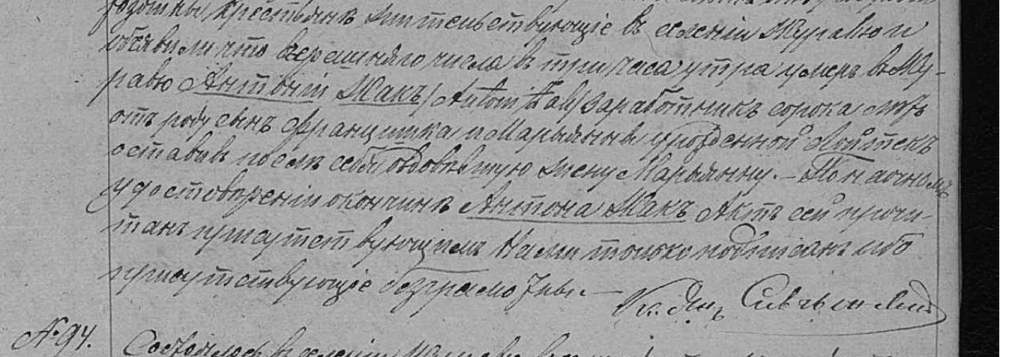 крестьяне жительствующіе въ селеніи Муравю и
объявили что вчерашняго числа въ три часа утра умеръ въ Му-
равю Антоній Макъ /Antoni Mak/ заработникъ сорока лѣтъ
отъ роду сынъ Францишка и Марьянны урожденной
оставивъ послѣ себя овдовѣвшую жену Марьянну. – По наочномъ
удостовѣреніи о кончинѣ Антона Макъ Актъ сей прочи-
танъ присутствующимъ Нами только подписанъ ибо
присутствующіе безграмотны. –
Кс.
№ 94.
Состоялось въ селеніи